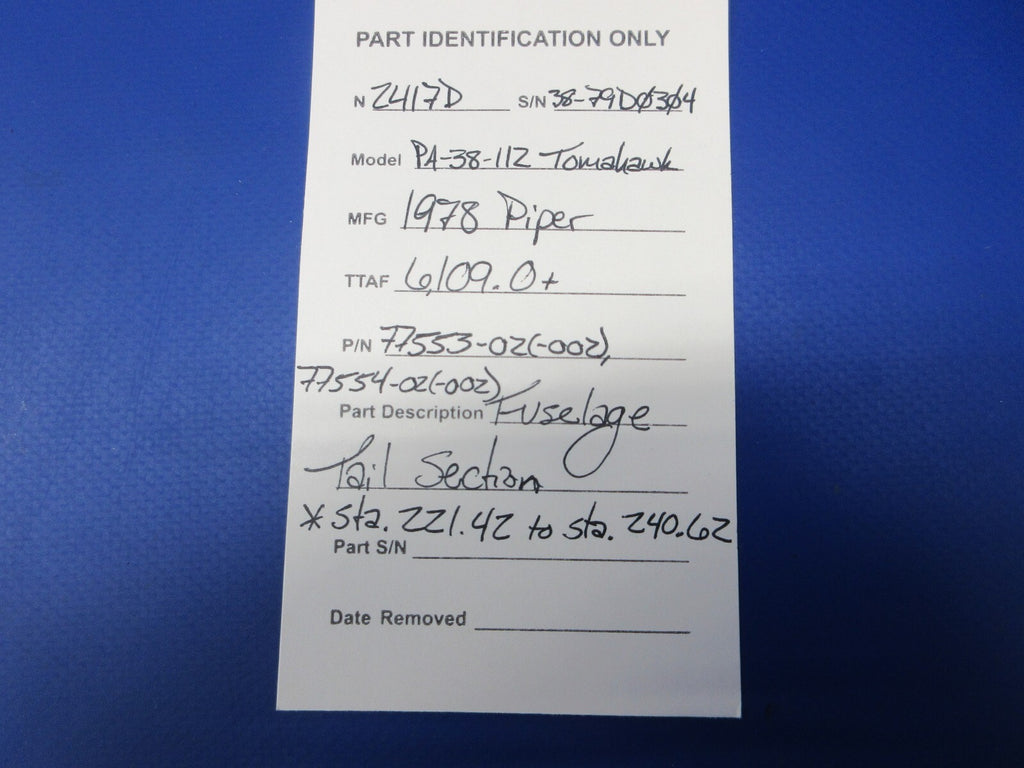 PART IDENTIFICATION ONLY
N 2417D S/N 38-79D0304
Model PA-38-112 Tomahawk
MFG 1978 Piper
TTAF 6,109.0+
P/N 77553-02(-002),
77554-02(-002)
Part Description Fuselage
Tail Section
* sta. 221.42 to sta. 240.62
Part S/N
Date Removed